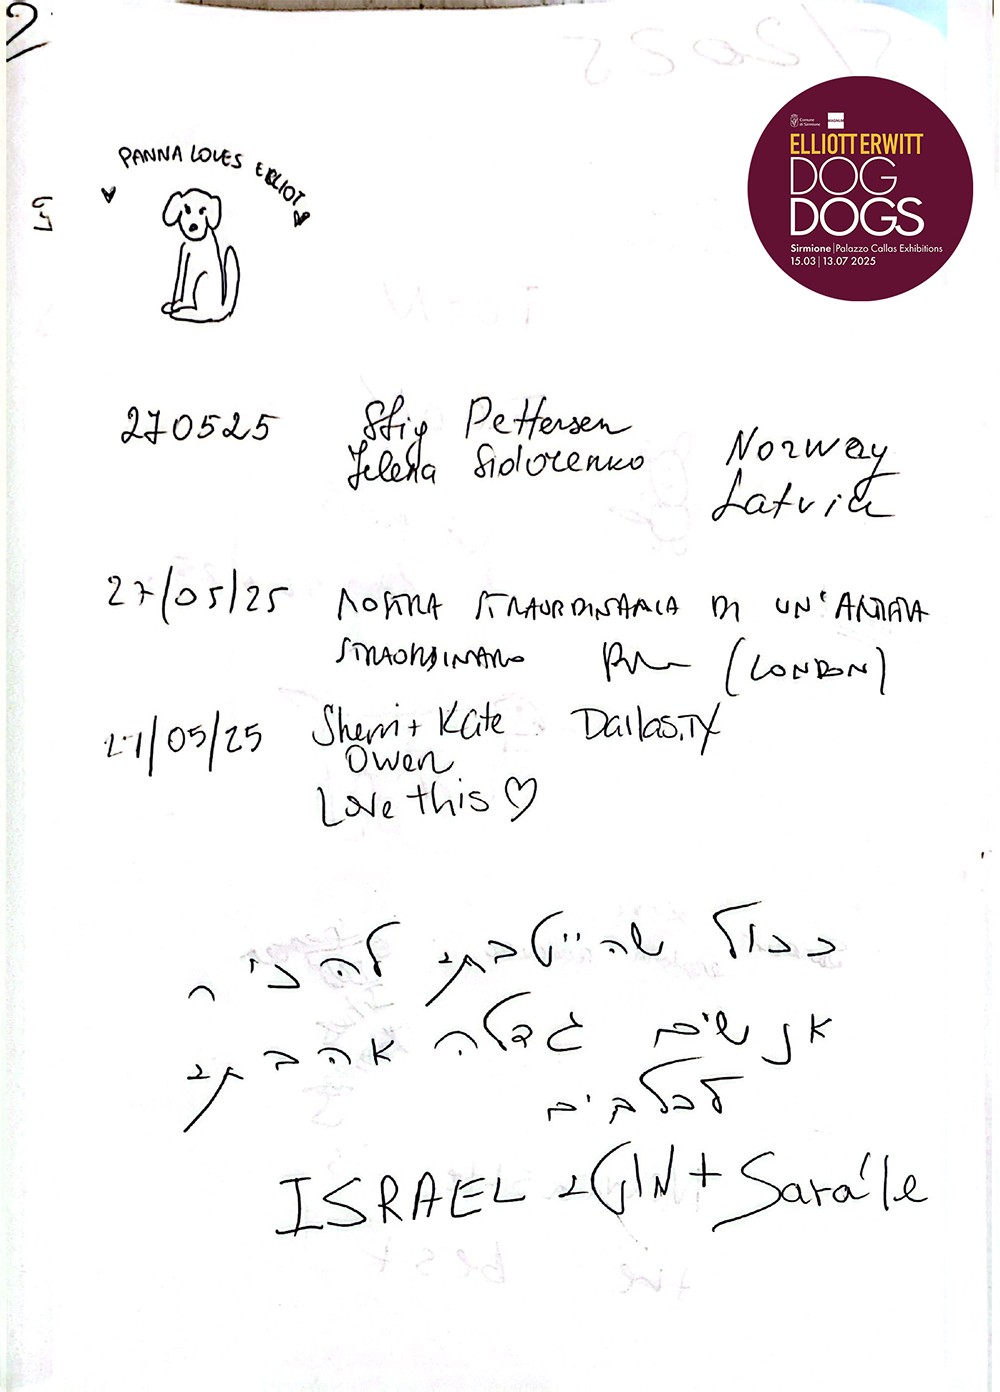 2
PANNA LOVES ELLIOT
Comune
di Sirmione
MAGNUM
ELLIOTT ERWITT
DOG
DOGS
Sirmione | Palazzo Callas Exhibitions
15.03 | 13.07 2025
270525 Stig Pettersen Norway
Jelena Sidorenko Latvia
27/05/25 MOSTRA STRAORDINARIA DI UN'
STRAORDINARIO (LONDON)
27/05/25 Sherri + Kate Dallas, TX
Owen
Love this ♡
ככול שה לה
אנשים גדלה אהבתי
לכלבים
ISRAEL + Sara'le